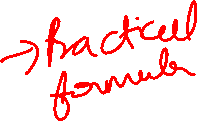 → Practical
formula